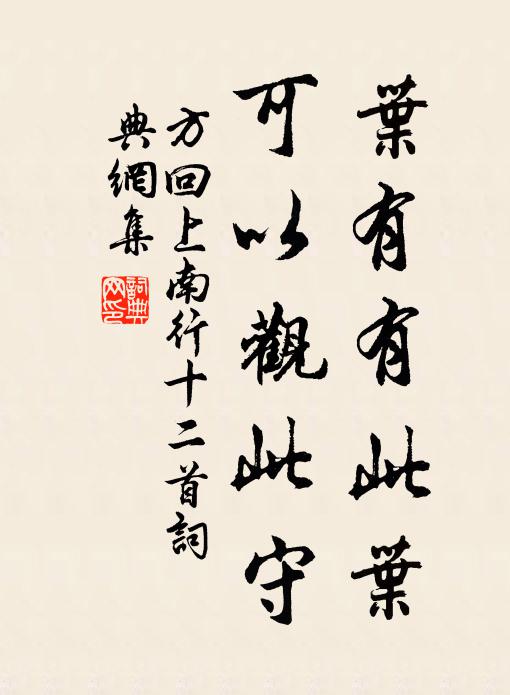 葉有有此葉
可以觀此守
方回上南行十二首詞
典網集
詞典
网印